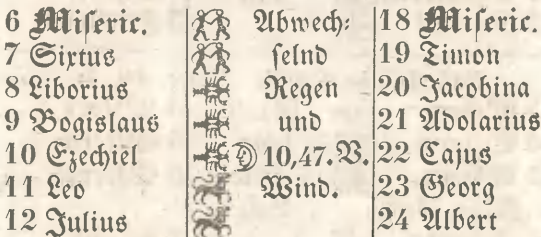 6 Miseric. Abwech: 18 Miseric.
7 Sixtus selnd 19 Timon
8 Liborius Regen 20 Jacobina
9 Bogislaus und 21 Adolarius
10 Ezechiel 10,47. V. 22 Cajus
11 Leo Wind. 23 Georg
12 Julius 24 Albert